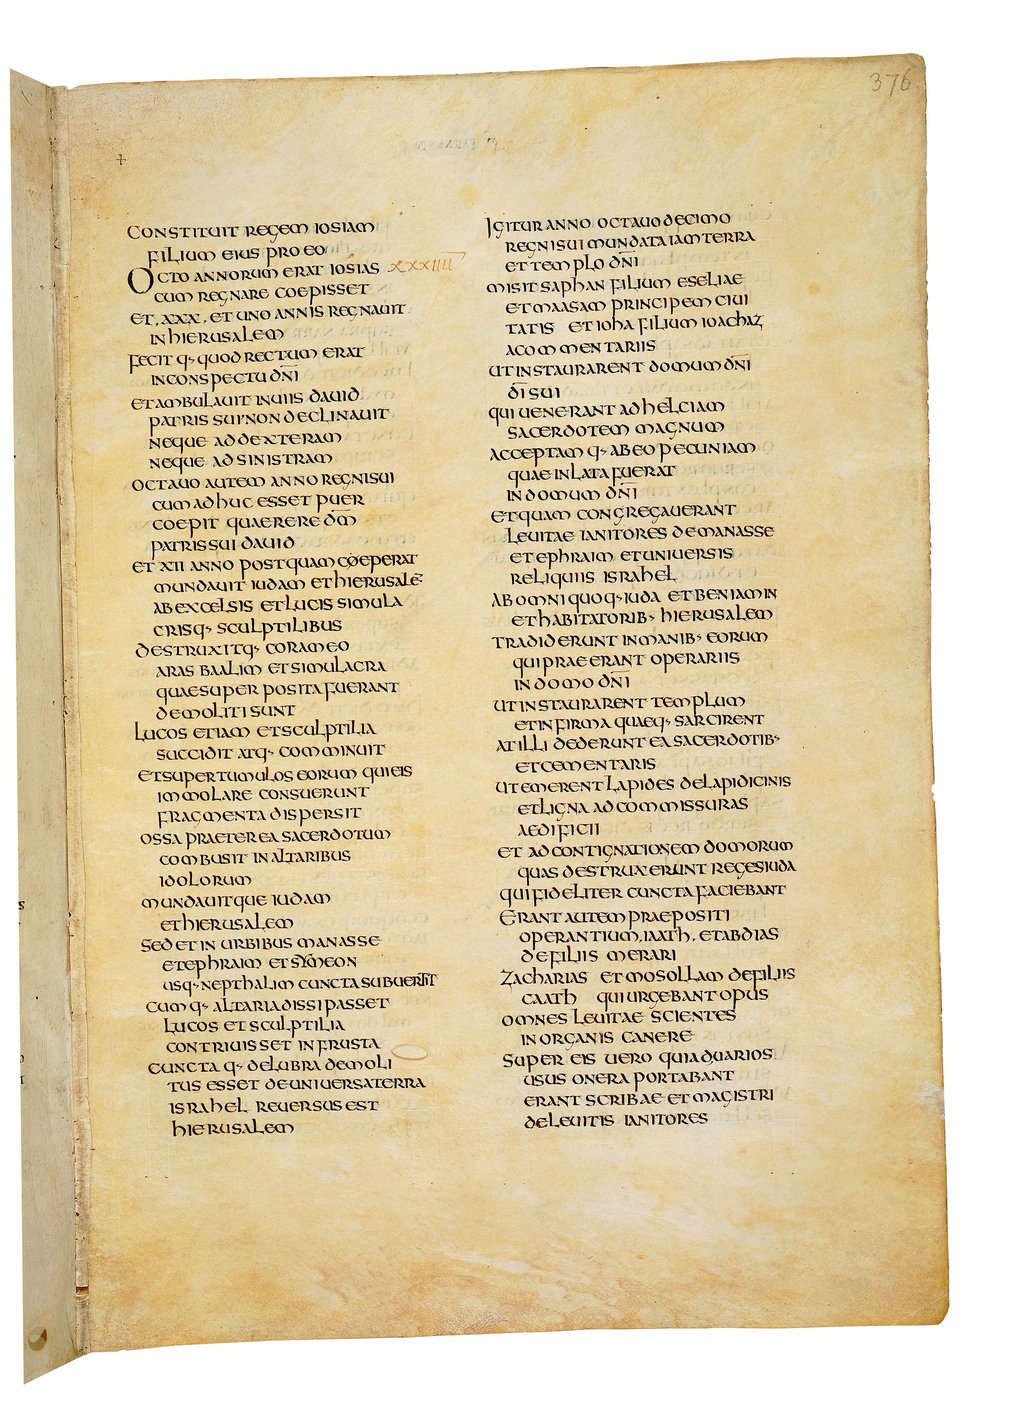 376
CONSTITUIT REGEM IOSIAM
FILIUM EIUS PRO EO
OCTO ANNORUM ERAT IOSIAS XXXIIII
CUM REGNARE COEPISSET
ET .XXX. ET UNO ANNIS REGNAUIT
IN HIERUSALEM
FECIT Q· QUOD RECTUM ERAT
IN CONSPECTU DN̄I
ET AMBULAUIT IN UIIS DAUID
PATRIS SUI NON DECLINAUIT
NEQUE AD DEXTERAM
NEQUE AD SINISTRAM
OCTAUO AUTEM ANNO REGNI SUI
CUM ADHUC ESSET PUER
COEPIT QUAERERE DM̄
PATRIS SUI DAUID
ET XII ANNO POSTQUAM COEPERAT
MUNDAUIT IUDAM ET HIERUSALĒ
AB EXCELSIS ET LUCIS SIMULA
CRISQ· SCULPTILIBUS
DESTRUXITQ· CORAM EO
ARAS BAALIM ET SIMULACRA
QUAE SUPERPOSITA FUERANT
DEMOLITI SUNT
LUCOS ETIAM ET SCULPTILIA
SUCCIDIT ATQ· COMMINUIT
ET SUPER TUMULOS EORUM QUI EIS
IMMOLARE CONSUERUNT
FRAGMENTA DISPERSIT
OSSA PRAETEREA SACERDOTUM
COMBUSIT IN ALTARIBUS
IDOLORUM
MUNDAUITQUE IUDAM
ET HIERUSALEM
SED ET IN URBIBUS MANASSE
ET EPHRAIM ET SYMEON
USQ· NEPTHALIM CUNCTA SUBUERTIT
CUMQ· ALTARIA DISSIPASSET
LUCOS ET SCULPTILIA
CONTRIUISSET IN FRUSTA
CUNCTAQ· DELUBRA DEMOLI
TUS ESSET DE UNIUERSA TERRA
ISRAHEL REUERSUS EST
HIERUSALEM
IGITUR ANNO OCTAUODECIMO
REGNI SUI MUNDATA IAM TERRA
ET TEMPLO DN̄I
MISIT SAPHAN FILIUM ESELIAE
ET MAASAM PRINCIPEM CIUI
TATIS ET IOHA FILIUM IOACHAZ
A COMMENTARIIS
UT INSTAURARENT DOMUM DN̄I
DĪ SUI
QUI UENERANT AD HELCIAM
SACERDOTEM MAGNUM
ACCEPTAMQ· AB EO PECUNIAM
QUAE INLATA FUERAT
IN DOMUM DN̄I
ET QUAM CONGREGAUERANT
LEUITAE IANITORES DE MANASSE
ET EPHRAIM ET UNIUERSIS
RELIQUIIS ISRAHEL
AB OMNI QUOQ· IUDA ET BENIAMIN
ET HABITATORIB· HIERUSALEM
TRADIDERUNT IN MANIB· EORUM
QUI PRAEERANT OPERARIIS
IN DOMO DN̄I
UT INSTAURARENT TEMPLUM
ET INFIRMA QUAEQ· SARCIRENT
AT ILLI DEDERUNT EA SACERDOTIB·
ET CEMENTARIS
UT EMERENT LAPIDES DE LAPIDICINIS
ET LIGNA AD COMMISSURAS
AEDIFICII
ET AD CONTIGNATIONEM DOMORUM
QUAS DESTRUXERUNT REGES IUDA
QUI FIDELITER CUNCTA FACIEBANT
ERANT AUTEM PRAEPOSITI
OPERANTIUM. IAATH. ET ABDIAS
DE FILIIS MERARI
ZACHARIAS ET MOSOLLAM DE FILIIS
CAATH QUI URGEBANT OPUS
OMNES LEUITAE SCIENTES
IN ORGANIS CANERE
SUPER EIS UERO QUI AD UARIOS
USUS ONERA PORTABANT
ERANT SCRIBAE ET MAGISTRI
DE LEUITIS IANITORES